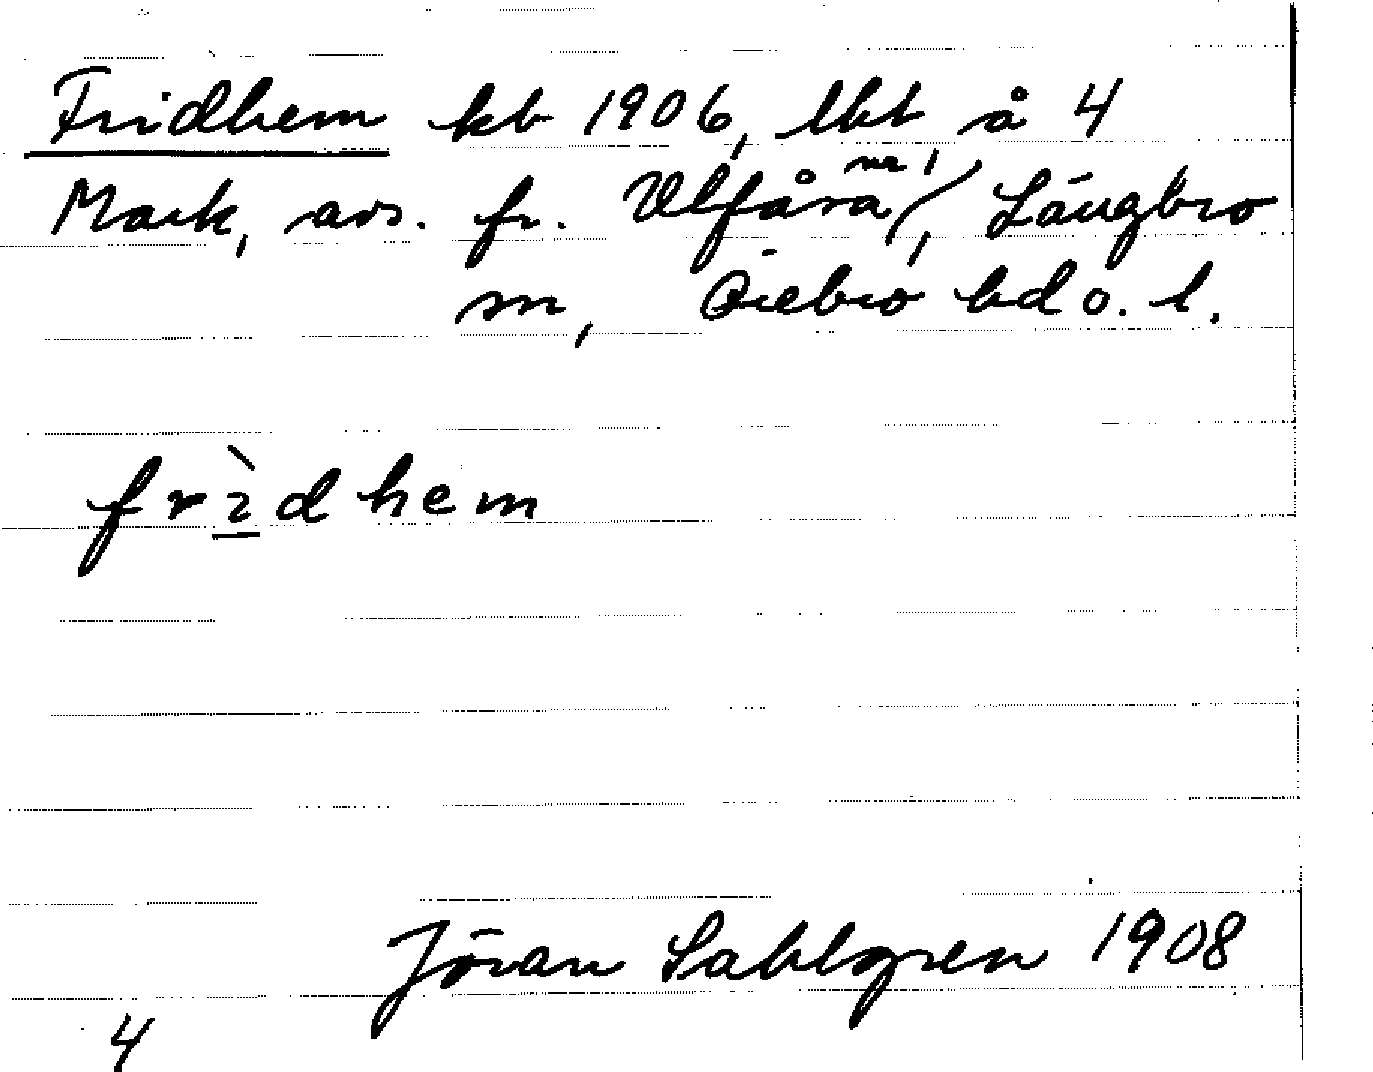 Fridhem kb 1906, lht å 4
Mark, avs. fr. Ulfåra nr 1/, Längbro
sn, Örebro hd o. l.
frìdhem
Jöran Sahlgren 1908
4